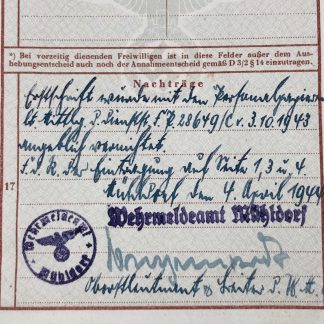 *) Bei vorzeitig dienenden Freiwilligen ist in diese Felder außer dem Aus-
hebungsentscheid auch noch der Annahmeentscheid gemäß D 3/2 § 14 einzutragen.
Nachträge
Erstschrift wurde mit den Personalpapieren
lt. Mittlg. 28649/C v. 3.10.1943
angeblich vernichtet.
F.d.R. der Eintragung auf Seite 1, 3 u. 4.
17
den 4. April 1944
Wehrmeldeamt Mühldorf
Wehrmeldeamt
Mühldorf
Oberstleutnant u. Leiter d. W.M.A.